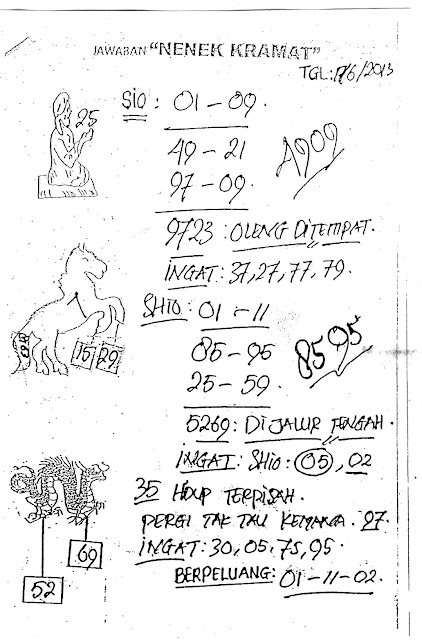 JAWABAN "NENEK KRAMAT"
TGL: 17/6/2013
25
SIO : 01 - 09.
49 - 21
97 - 09.
A909
9723 : OLENG DITEMPAT.
INGAT : 37, 27, 77, 79.
15 29
SHIO : 01 - 11
85 - 95
25 - 59.
8595
5269 : DI JALUR TENGAH.
INGAT : SHIO : 05, 02
35 HIDUP TERPISAH.
PERGI TAK TAU KEMANA. 97.
INGAT : 30, 05, 75, 95.
BERPELUANG : 01 - 11 - 02.
69
52